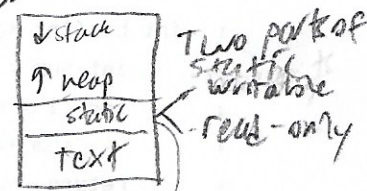 ↓ stack
↑ heap
static
text
Two parts of
static
writable
- read-only